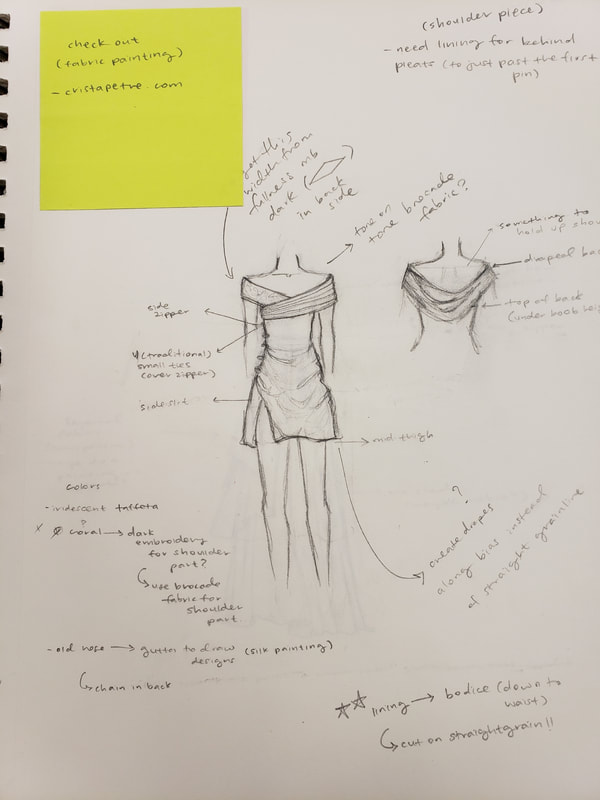 check out
(fabric painting)
- cristapetre.com
(shoulder piece)
- need lining for behind
pleats (to just past the first
pin)
get this
width from
fullness mb
dark
in back
side
tone on
tone brocade
fabric?
something to
hold up shou
draped bac
top of back
(under boob heig
side
zipper
4 (traditional)
small ties
(over zipper)
side slit
mid thigh
?
create drapes
along bias instead
of straight grainline
colors
- iridescent taffeta
?
x coral → dark
embroidery
for shoulder
part?
use brocade
fabric for
shoulder
part.
- old rose → gutta to draw (silk painting)
designs
chain in back
☆☆ lining → bodice (down to
waist)
cut on straightgrain!!